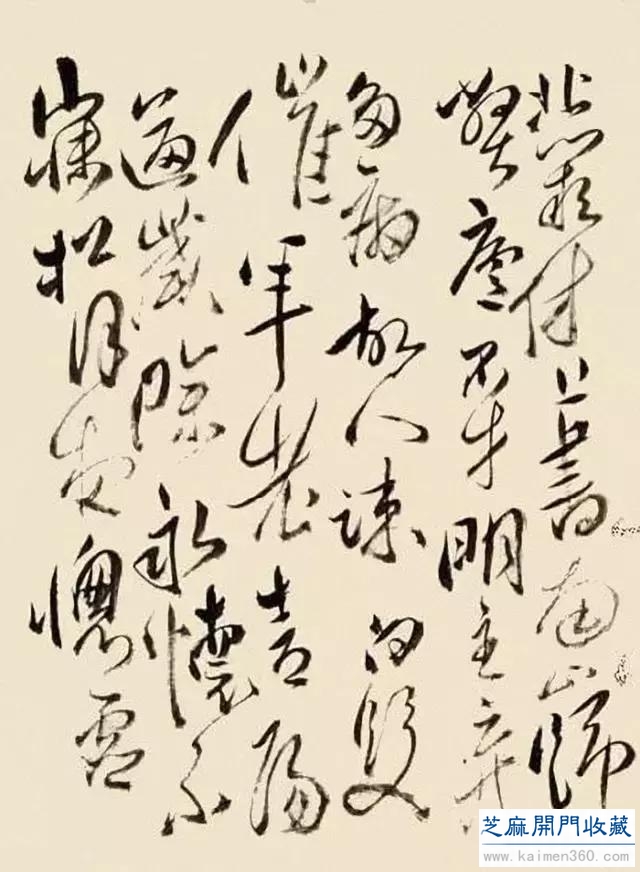 北闕休上書南山歸
弊廬不才明主棄
多病故人踈白髮
催年老青陽
逼歲除永懷不
寐松月夜牕虛
芝麻開門收藏
www.kaimen360.com